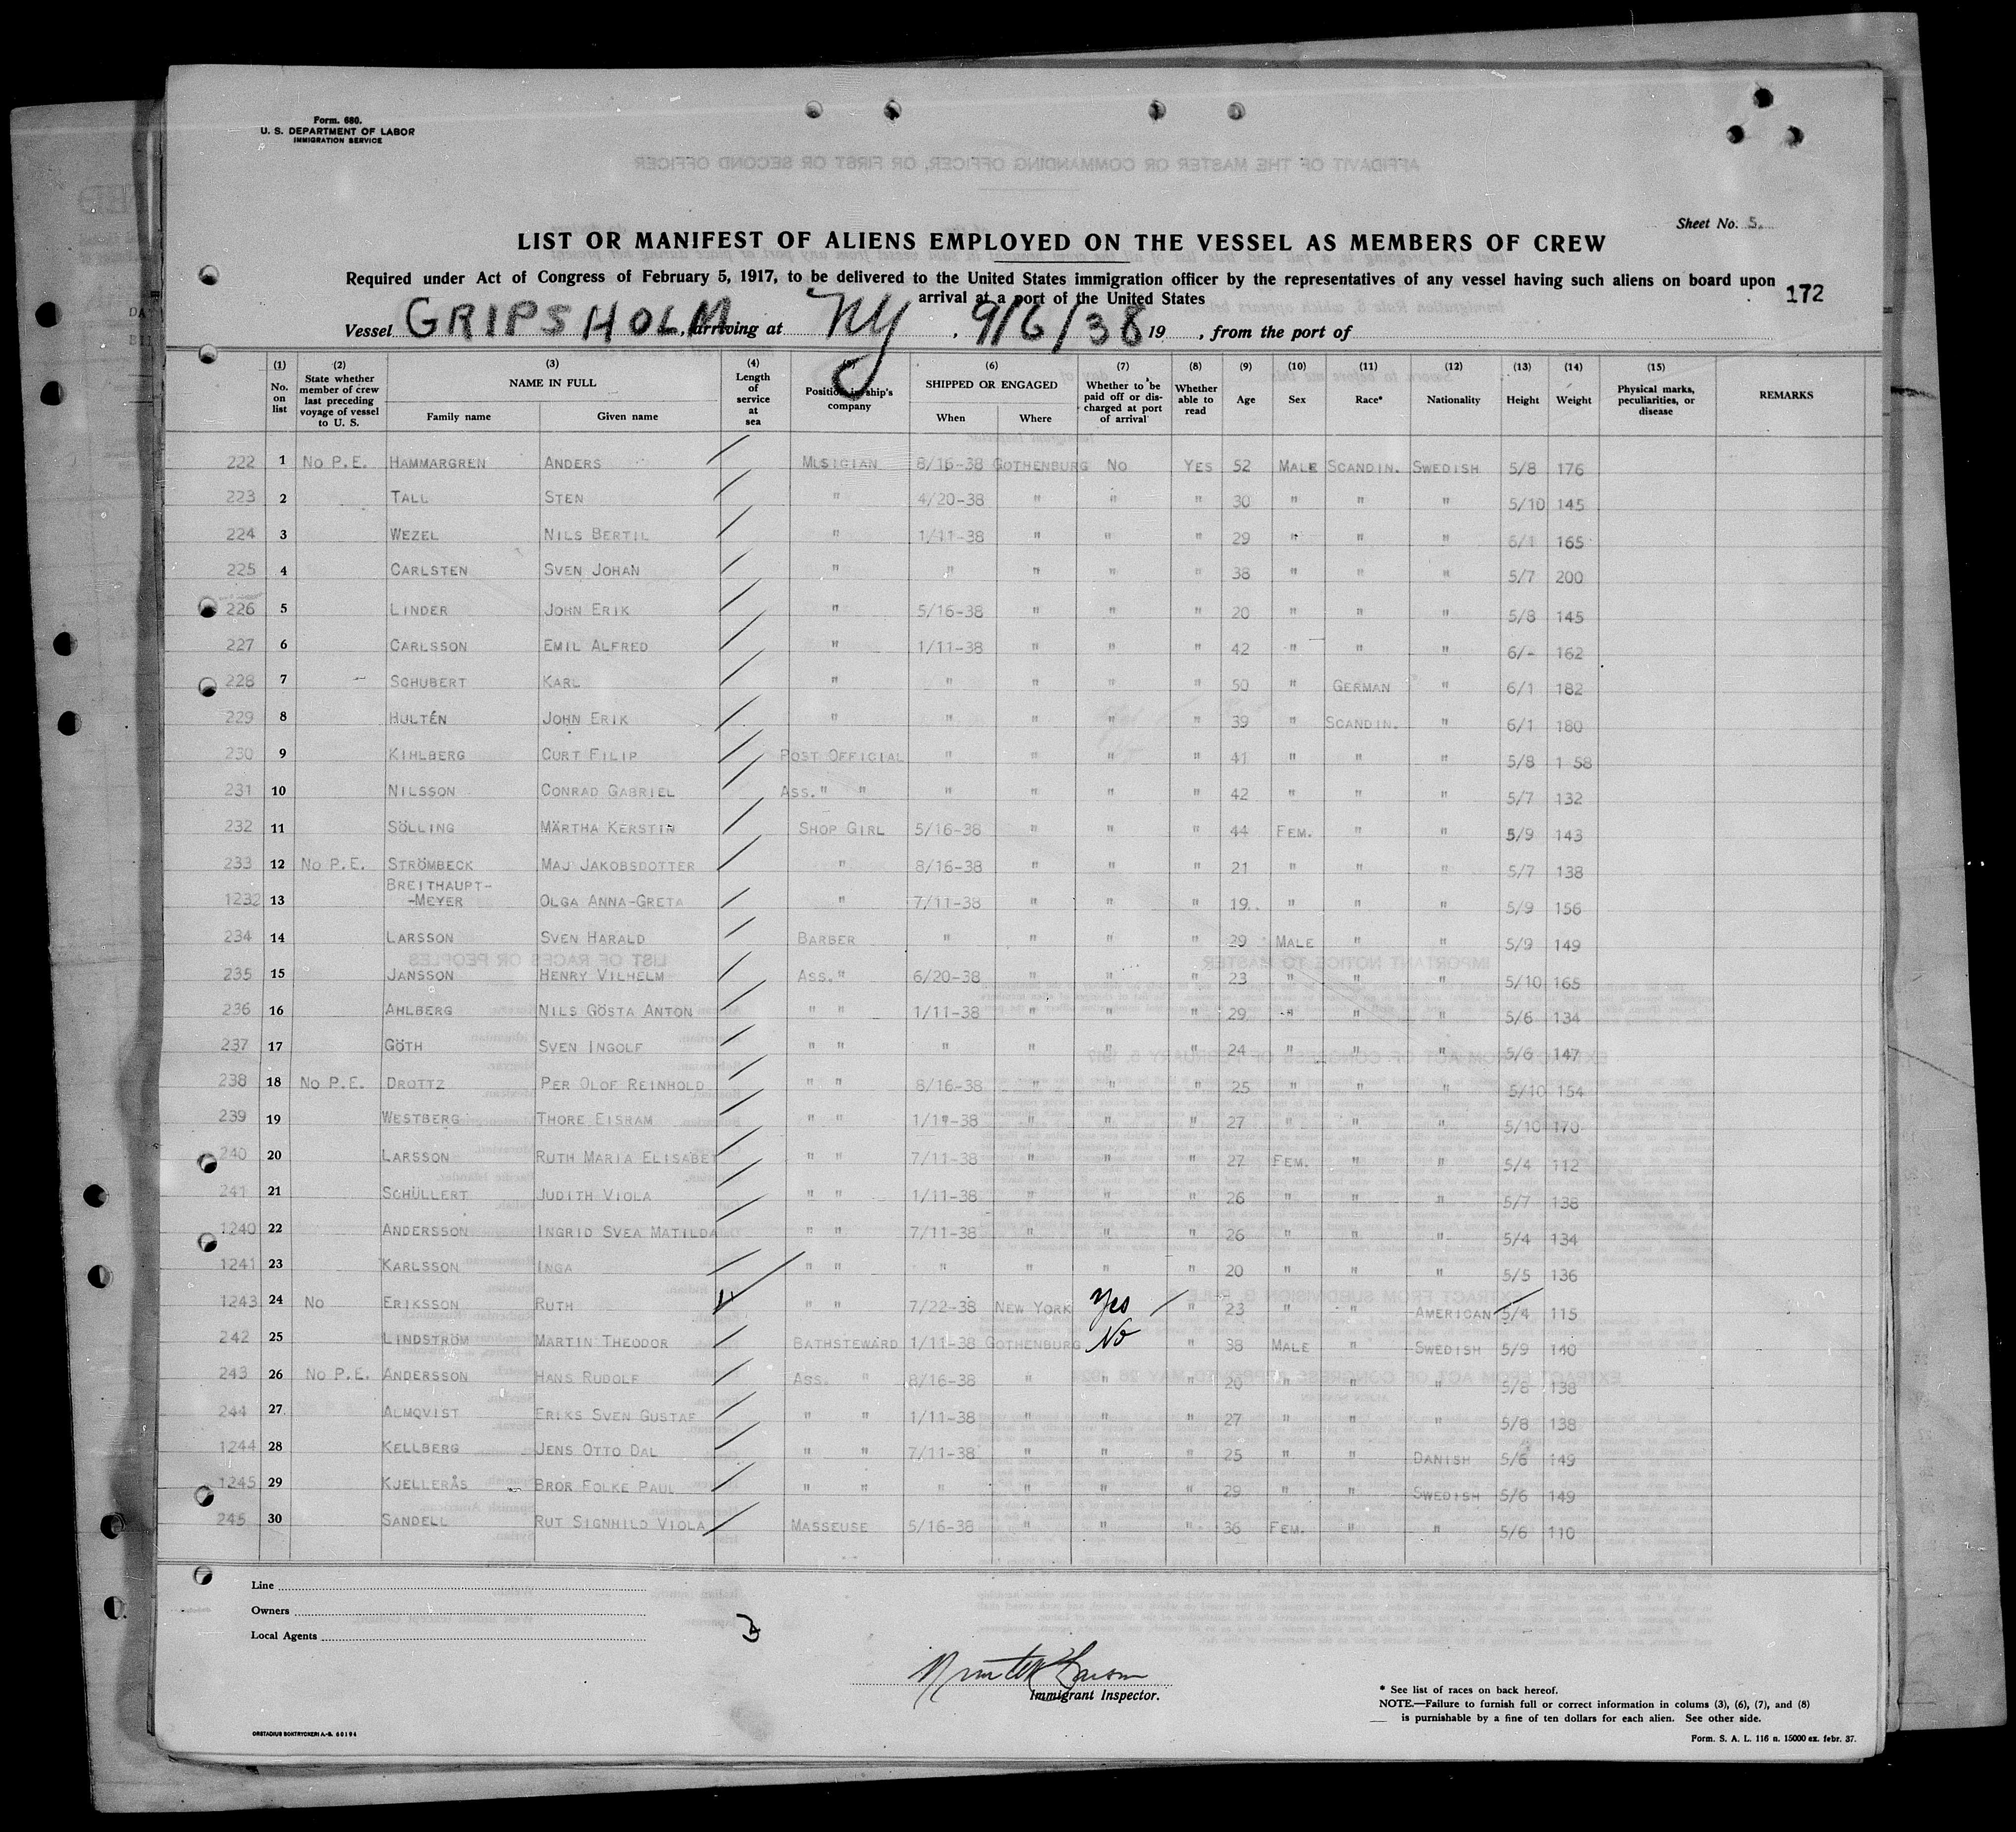 Form. 680.
U. S. DEPARTMENT OF LABOR
IMMIGRATION SERVICE
Sheet No. 5.
LIST OR MANIFEST OF ALIENS EMPLOYED ON THE VESSEL AS MEMBERS OF CREW
Required under Act of Congress of February 5, 1917, to be delivered to the United States immigration officer by the representatives of any vessel having such aliens on board upon
arrival at a port of the United States
172
Vessel GRIPSHOLM, arriving at NY, 9/6/38 19 , from the port of
(1) No. on list (2) State whether member of crew last preceding voyage of vessel to U. S. (3) NAME IN FULL Family name Given name (4) Length of service at sea (5) Position in ship's company (6) SHIPPED OR ENGAGED When Where (7) Whether to be paid off or discharged at port of arrival (8) Whether able to read (9) Age (10) Sex (11) Race* (12) Nationality (13) Height (14) Weight (15) Physical marks, peculiarities, or disease REMARKS
222 1 No P.E. HAMMARGREN ANDERS MUSICIAN 8/16-38 GOTHENBURG No YES 52 MALE SCANDIN. SWEDISH 5/8 176
223 2 TALL STEN " 4/20-38 " " " 30 " " " 5/10 145
224 3 WEZEL NILS BERTIL " 1/11-38 " " " 29 " " " 6/1 165
225 4 CARLSTEN SVEN JOHAN " " " " " 38 " " " 5/7 200
226 5 LINDER JOHN ERIK " 5/16-38 " " " 20 " " " 5/8 145
227 6 CARLSSON EMIL ALFRED " 1/11-38 " " " 42 " " " 6/- 162
228 7 SCHUBERT KARL " " " " " 50 " GERMAN " 6/1 182
229 8 HULTÉN JOHN ERIK " " " " " 39 " SCANDIN. " 6/1 180
230 9 KIHLBERG CURT FILIP POST OFFICIAL " " " " 41 " " " 5/8 1 58
231 10 NILSSON CONRAD GABRIEL ASS. " " " " " " 42 " " " 5/7 132
232 11 SÖLLING MÄRTHA KERSTIN SHOP GIRL 5/16-38 " " " 44 FEM. " " 5/9 143
233 12 No P.E. STRÖMBECK MAJ JAKOBSDOTTER " 8/16-38 " " " 21 " " " 5/7 138
1232 13 BREITHAUPT-
-MEYER OLGA ANNA-GRETA " 7/11-38 " " " 19. " " " 5/9 156
234 14 LARSSON SVEN HARALD BARBER " " " " 29 MALE " " 5/9 149
235 15 JANSSON HENRY VILHELM ASS. " 6/20-38 " " " 23 " " " 5/10 165
236 16 AHLBERG NILS GÖSTA ANTON " " 1/11-38 " " " 29 " " " 5/6 134
237 17 GÖTH SVEN INGOLF " " " " " " 24 " " " 5/6 147
238 18 No P.E. DROTTZ PER OLOF REINHOLD " " 8/16-38 " " " 25 " " " 5/10 154
239 19 WESTBERG THORE EISRAM " " 1/11-38 " " " 27 " " " 5/10 170
240 20 LARSSON RUTH MARIA ELISABET " " 7/11-38 " " " 27 FEM. " " 5/4 112
241 21 SCHÜLLERT JUDITH VIOLA " " 1/11-38 " " " 26 " " " 5/7 138
1240 22 ANDERSSON INGRID SVEA MATILDA " " 7/11-38 " " " 26 " " " 5/4 134
1241 23 KARLSSON INGA " " " " " " 20 " " " 5/5 136
1243 24 No ERIKSSON RUTH " " 7/22-38 NEW YORK Yes " 23 " " AMERICAN 5/4 115
242 25 LINDSTRÖM MARTIN THEODOR BATHSTEWARD 1/11-38 GOTHENBURG No " 38 MALE " SWEDISH 5/9 140
243 26 No P.E. ANDERSSON HANS RUDOLF ASS. " 8/16-38 " " " 20 " " " 5/8 138
244 27 ALMQVIST ERIKS SVEN GUSTAF " " 1/11-38 " " " 27 " " " 5/8 138
1244 28 KELLBERG JENS OTTO DAL " " 7/11-38 " " " 25 " " DANISH 5/6 149
1245 29 KJELLERÅS BROR FOLKE PAUL " " " " " " 29 " " SWEDISH 5/6 149
245 30 SANDELL RUT SIGNHILD VIOLA MASSEUSE 5/16-38 " " " 36 FEM. " " 5/6 110
Line
Owners
Local Agents
Immigrant Inspector.
* See list of races on back hereof.
NOTE.—Failure to furnish full or correct information in colums (3), (6), (7), and (8)
is purnishable by a fine of ten dollars for each alien. See other side.
ORSTADIUS BOKTRYCKERI A.-B. 60194
Form. S. A. L. 116 n. 15000 ex. febr. 37.